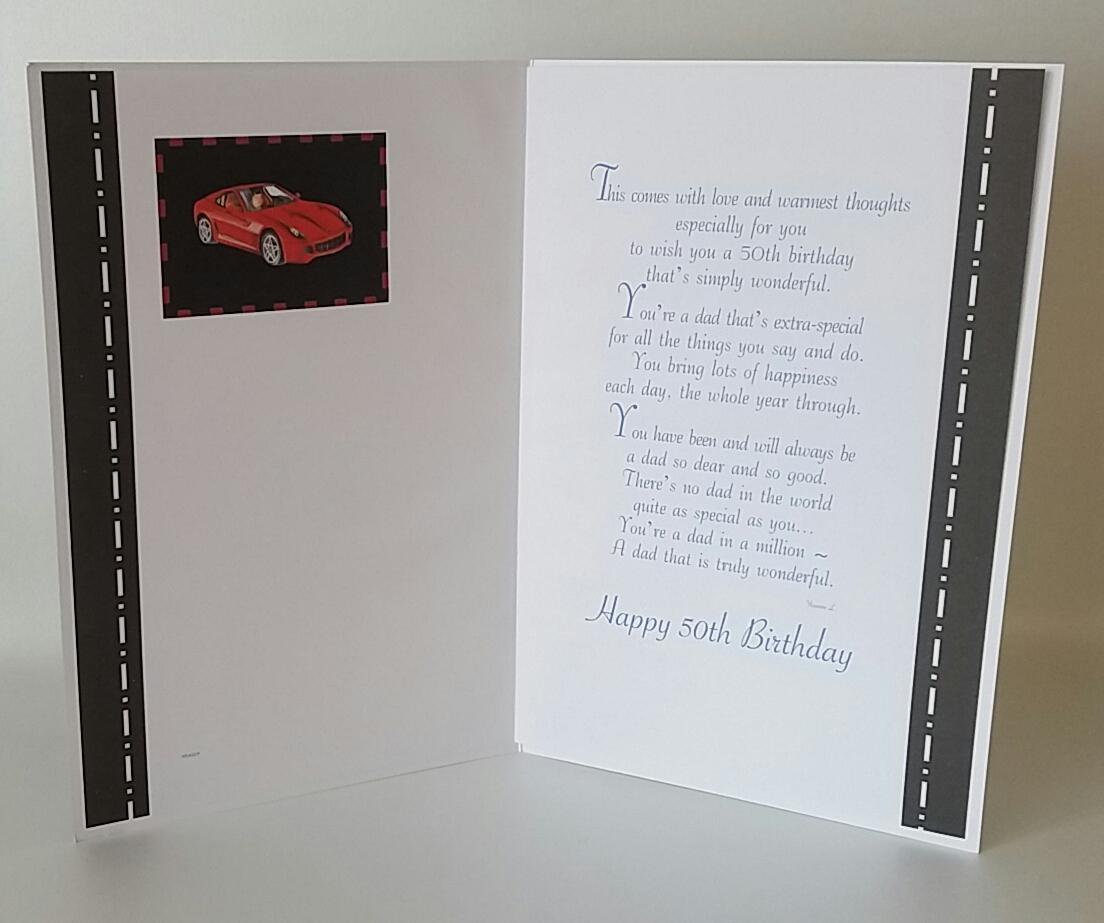 This comes with love and warmest thoughts
especially for you
to wish you a 50th birthday
that's simply wonderful.
You're a dad that's extra-special
for all the things you say and do.
You bring lots of happiness
each day, the whole year through.
You have been and will always be
a dad so dear and so good.
There's no dad in the world
quite as special as you...
You're a dad in a million ~
A dad that is truly wonderful.
Happy 50th Birthday